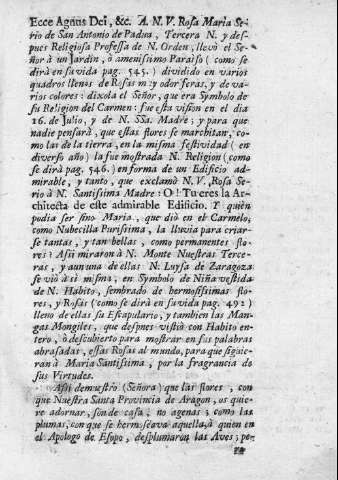 Ecce Agnus Dei, &c. A. N. V. Rosa Maria Se-
rio de San Antonio de Padua, Tercera N. y des-
pues Religiosa Professa de N. Orden, llevó el Se-
ñor à un Jardin, ò amenissimo Paraiso (como se
dirà en su vida pag. 545.) dividido en varios
quadros llenos de Rosas muy odoriferas, y de va-
rios colores: dixola el Señor, que era Symbolo de
su Religion del Carmen: fue esta vision en el dia
16. de Julio, y de N. SSa. Madre; y para que
nadie pensarà, que estas flores se marchitan, co-
mo las de la tierra, en la misma festividad (en
diverso año) la fue mostrada N. Religion (como
se dirà pag. 546.) en forma de un Edificio ad-
mirable, y tanto, que exclamò N. V. Rosa Se-
rio à N. Santissima Madre: O! Tu eres la Ar-
chitecta de este admirable Edificio. Y quièn
podia ser sino Maria, que diò en el Carmelo,
como Nubecilla Purissima, la lluvia para criar-
se tantas, y tan bellas, como permanentes flo-
res? Assi miraron à N. Monte Nuestras Terce-
ras, y aun una de ellas N. Luysa de Zaragoza
se viò à sì misma, en Symbolo de Niña vestida
de N. Habito, sembrado de hermosissimas flo-
res, y Rosas (como se dirà en su vida pag. 492)
lleno de ellas su Escapulario, y tambien las Man-
gas Mongiles, que despues vistiò con Habito en-
tero, ò descubierto para mostrar en sus palabras
abrasadas, essas Rosas al mundo, para que siguie-
ran à Maria Santissima, por la fragrancia de
sus Virtudes.
Assi demuestro (Señora) que las flores, con
que Nuestra Santa Provincia de Aragon, os quie-
re adornar, son de casa, no agenas; como las
plumas, con que se hermoseava aquella, à quien en
el Apologo de Esopo, desplumaron las Aves; pe-